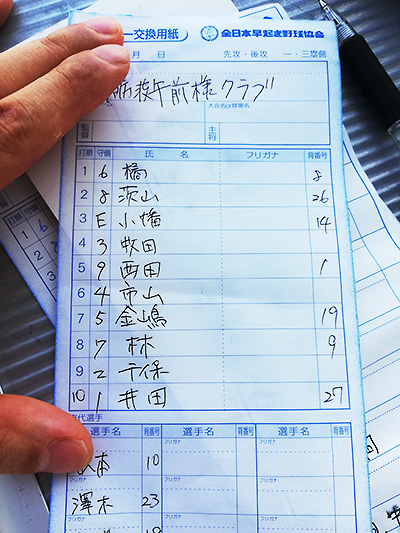 ー交換用紙 全日本早起き野球協会
月 日 先攻・後攻 一・三塁側
午前様クラブ
大会名or球場名
主将
打順 守備 氏 名 フリガナ 背番号
1 6 橋 8
2 8 茨山 26
3 E 小幡 14
4 3 牧田
5 9 西田 1
6 4 市山
7 5 金嶋 19
8 7 林 9
9 2 千保
10 1 井田 27
代選手
選手名 背番号 選手名 背番号 選手名 背番号
フリガナ フリガナ フリガナ
本 10
フリガナ フリガナ フリガナ
澤木 23
フリガナ フリガナ フリガナ